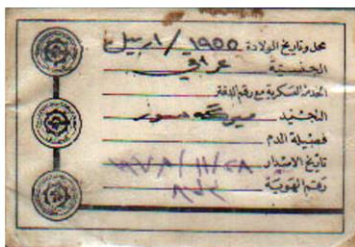 محل وتاريخ الولادة ١٩٥٥ / اربيل
الجنسية عراقي
الخدمة العسكرية مع رقم الدفتر
التجنيد ميركه سور
فصيلة الدم
تاريخ الاصدار ١٩٧٨/١١/٢٨
رقم الهوية